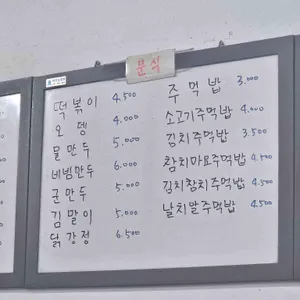 분식
떡볶이 4.500
오뎅 4.000
물만두 5.000
비빔만두 6.000
군만두 5.000
김말이 5.000
닭강정 6.500
주먹밥 3.000
소고기주먹밥 4.000
김치주먹밥 3.500
참치마요주먹밥 4.500
김치참치주먹밥 4.500
날치알주먹밥 4.500